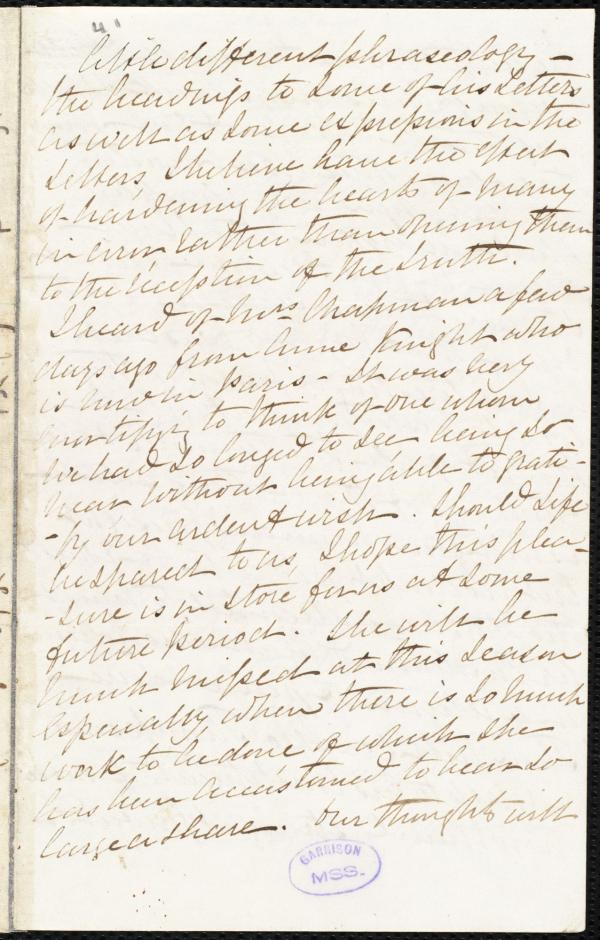 4
little different phraseology -
the headings to some of his Letters
as well as some expressions in the
Letters, I believe have the effect
of hardening the hearts of many
in error rather than opening them
to the reception of the truth.
I heard of Mrs Chapman a few
days ago from Anne Knight who
is now in Paris - It was very
mortifying to think of one whom
we had so longed to see being so
near without being able to grati-
-fy our ardent wish. Should Life
be spared to us, I hope this plea-
-sure is in store for us at some
future period. She will be
much missed at this season
especially when there is so much
work to be done of which she
has been accustomed to bear so
large a share. Our thoughts will
GARRISON
MSS.